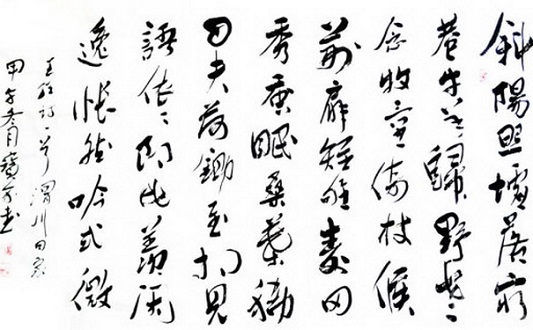 斜陽照墟落窮
巷牛羊歸野老
念牧童倚杖候
荊扉雉雊麦苗
秀蚕眠桑葉稀
田夫荷鋤至相見
語依〻即此羨閑
逸悵然吟式微
王維詩一首渭川田家
甲午冬月书